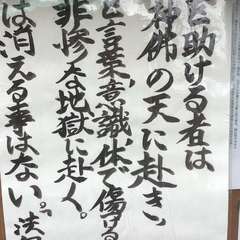 助ける者は
神佛の天に赴き、
と言葉、意識、体で傷ける
悲惨な地獄に赴く。
は消える事はない。法